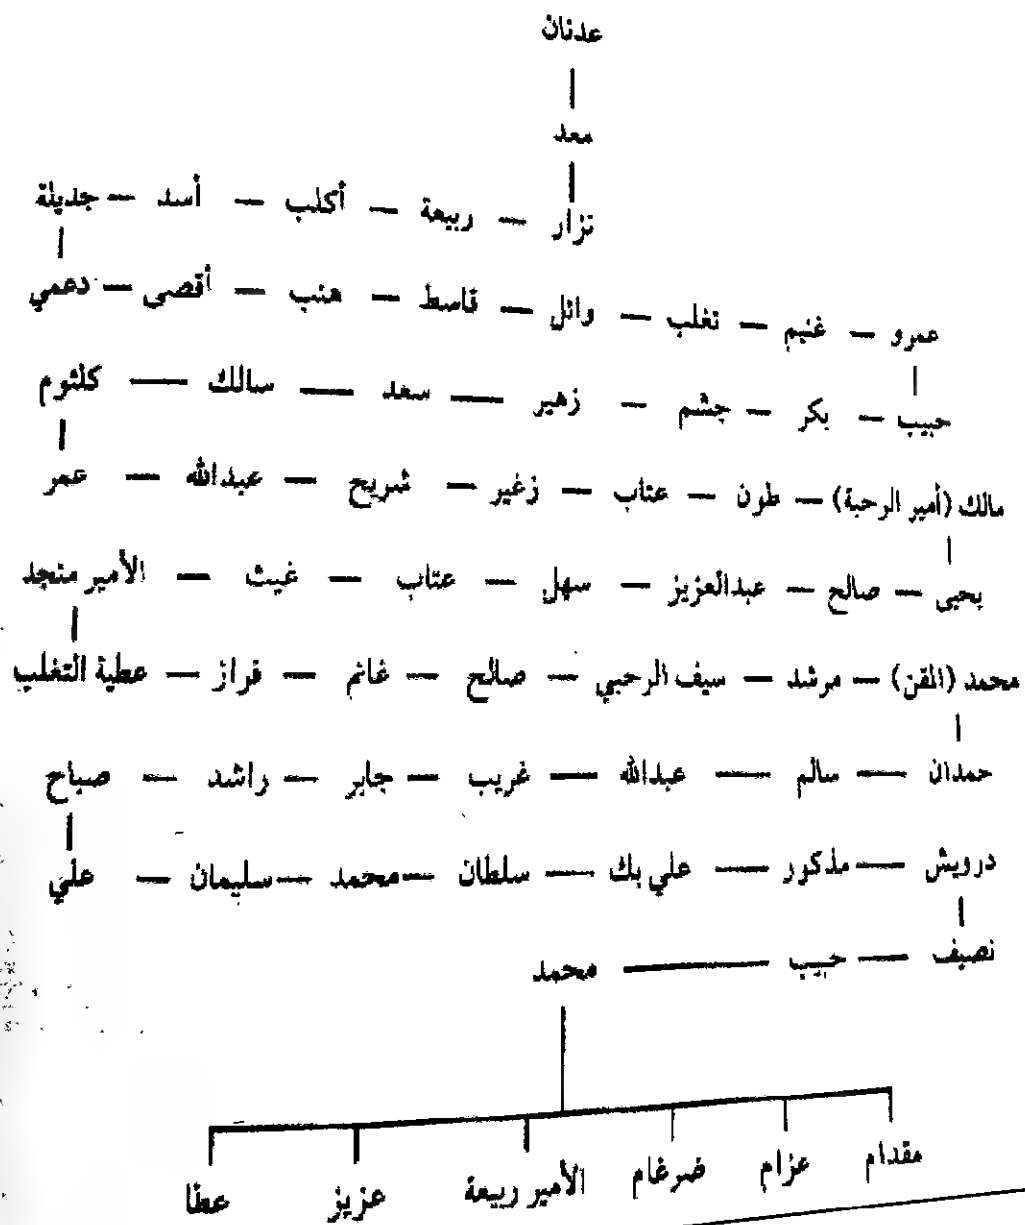 عدنان
معد
نزار — ربيعة — أكلب — أسد — جديلة
عمرو — غنيم — تغلب — وائل — قاسط — هنب — أقصى — دعمي
حبيب — بكر — جشم — زهير — سعد — سالك — كلثوم
مالك (أمير الرحبة) — طون — عتاب — زغير — شريح — عبدالله — عمر
يحيى — صالح — عبدالعزيز — سهل — عتاب — غيث — الأمير منجد
محمد (المقن) — مرشد — سيف الرحبي — صالح — غانم — قراز — عطية التغلب
حمدان — سالم — عبدالله — غريب — جابر — راشد — صباح
درويش — مذكور — علي بك — سلطان — محمد — سليمان — علي
نصيف — حبيب — محمد
مقدام عزام ضرغام الأمير ربيعة عزيز عطا